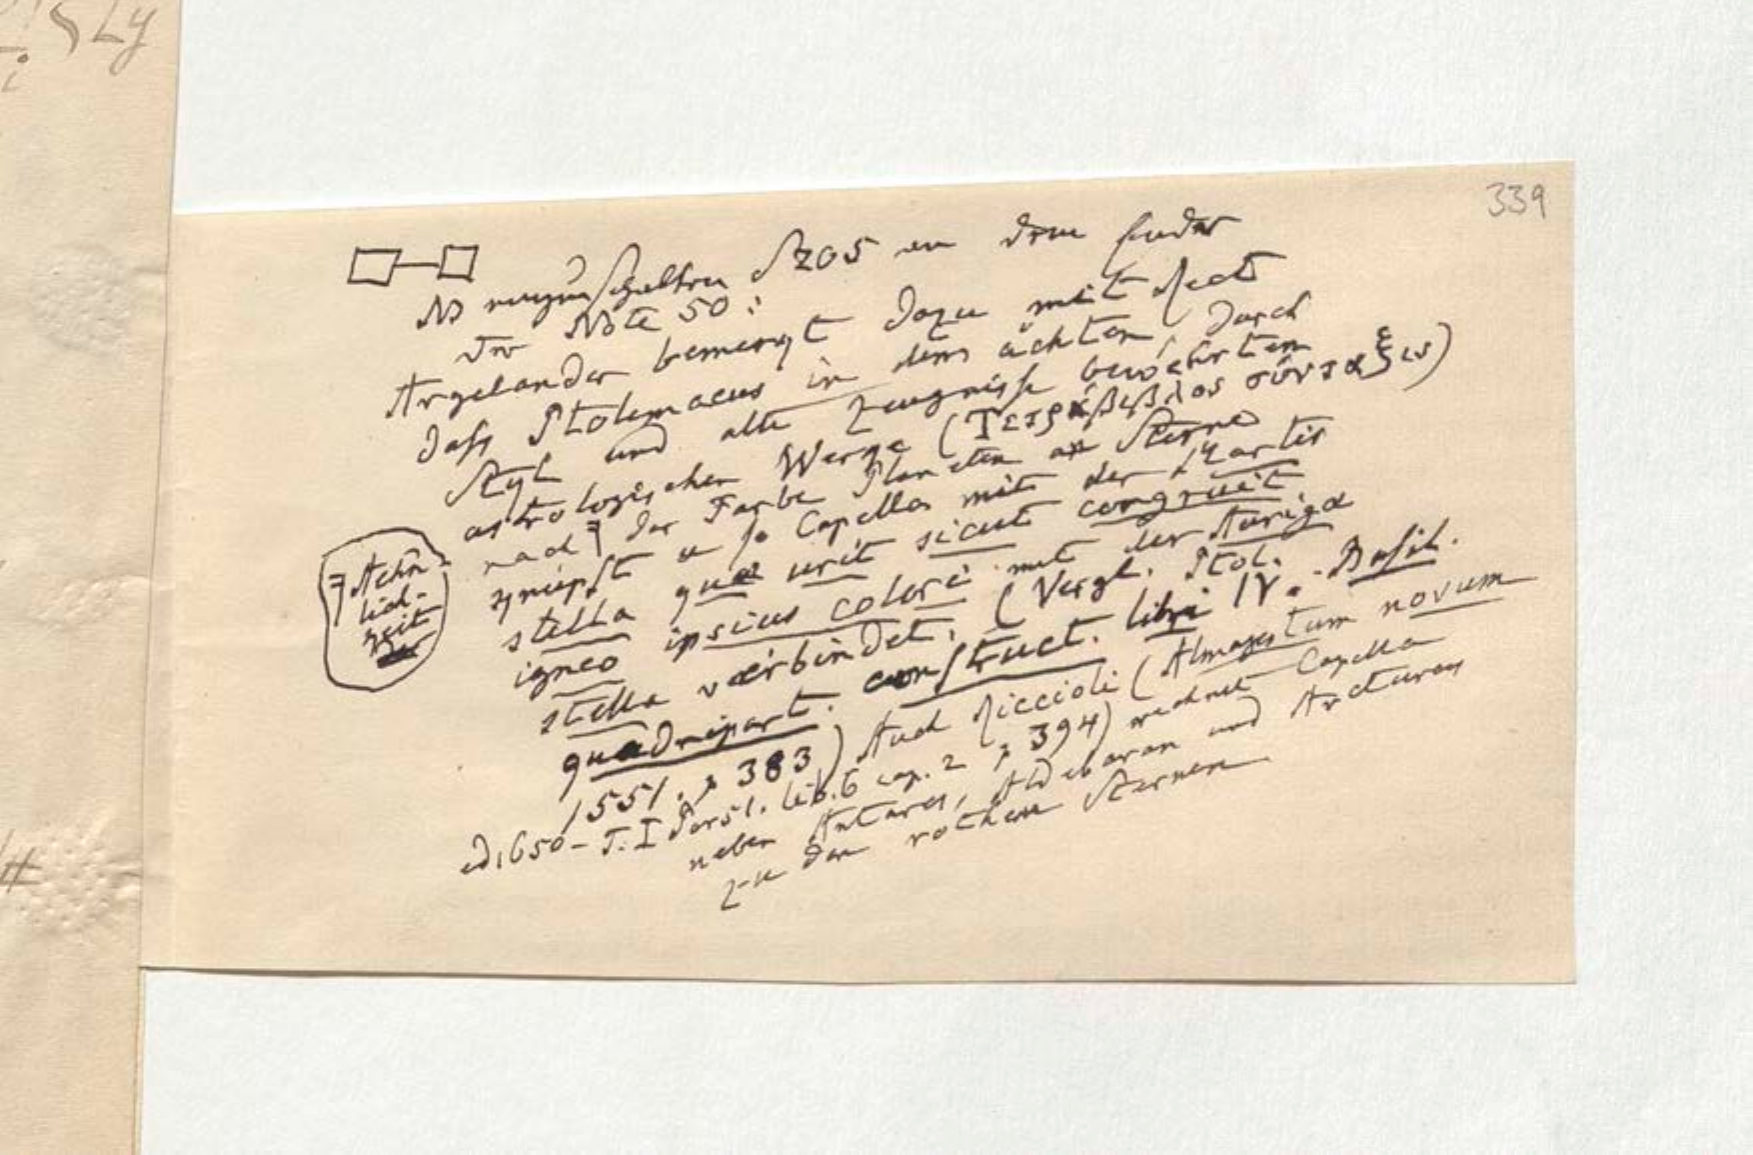 339
NB einzuschalten S 205 an dem Ende
der Note 50:
Argelander bemerkt dazu mit Recht
dass Ptolemaeus in dem ächten, durch
Styl und alte Zeugnisse bewährten
astrologischen Werke (Τετράβιβλος σύνταξις)
nach der Farbe Planeten an Sterne
knüpft u so Capella mit der Martis
stella quae urit sicut congruit
igneo ipsius colori mit der Aurigae
stella verbindet. (Vergl. Ptol.
quadripart. construct. libri IV. Basil.
1551. p 383) Auch Riccioli (Almagestum novum
ed. 1650 T. I Pars 1. lib. 6 cap. 2 p 394) rechnet Capella
neben Antares, Aldebaran und Arcturus
zu den rothen Sternen
Aehn-
lich-
keit